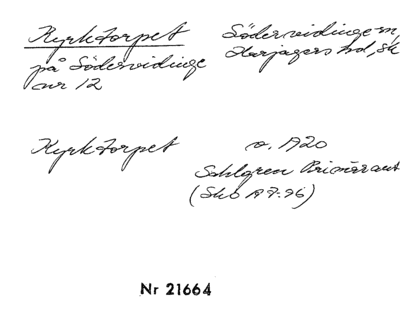 Kyrktorpet Södervidinge sn,
på Södervidinge Harjagers hd, sk
nr 12
Kyrktorpet o. 1920
Sahlgren Primäraut
(Sko A 7:96)
Nr 21664